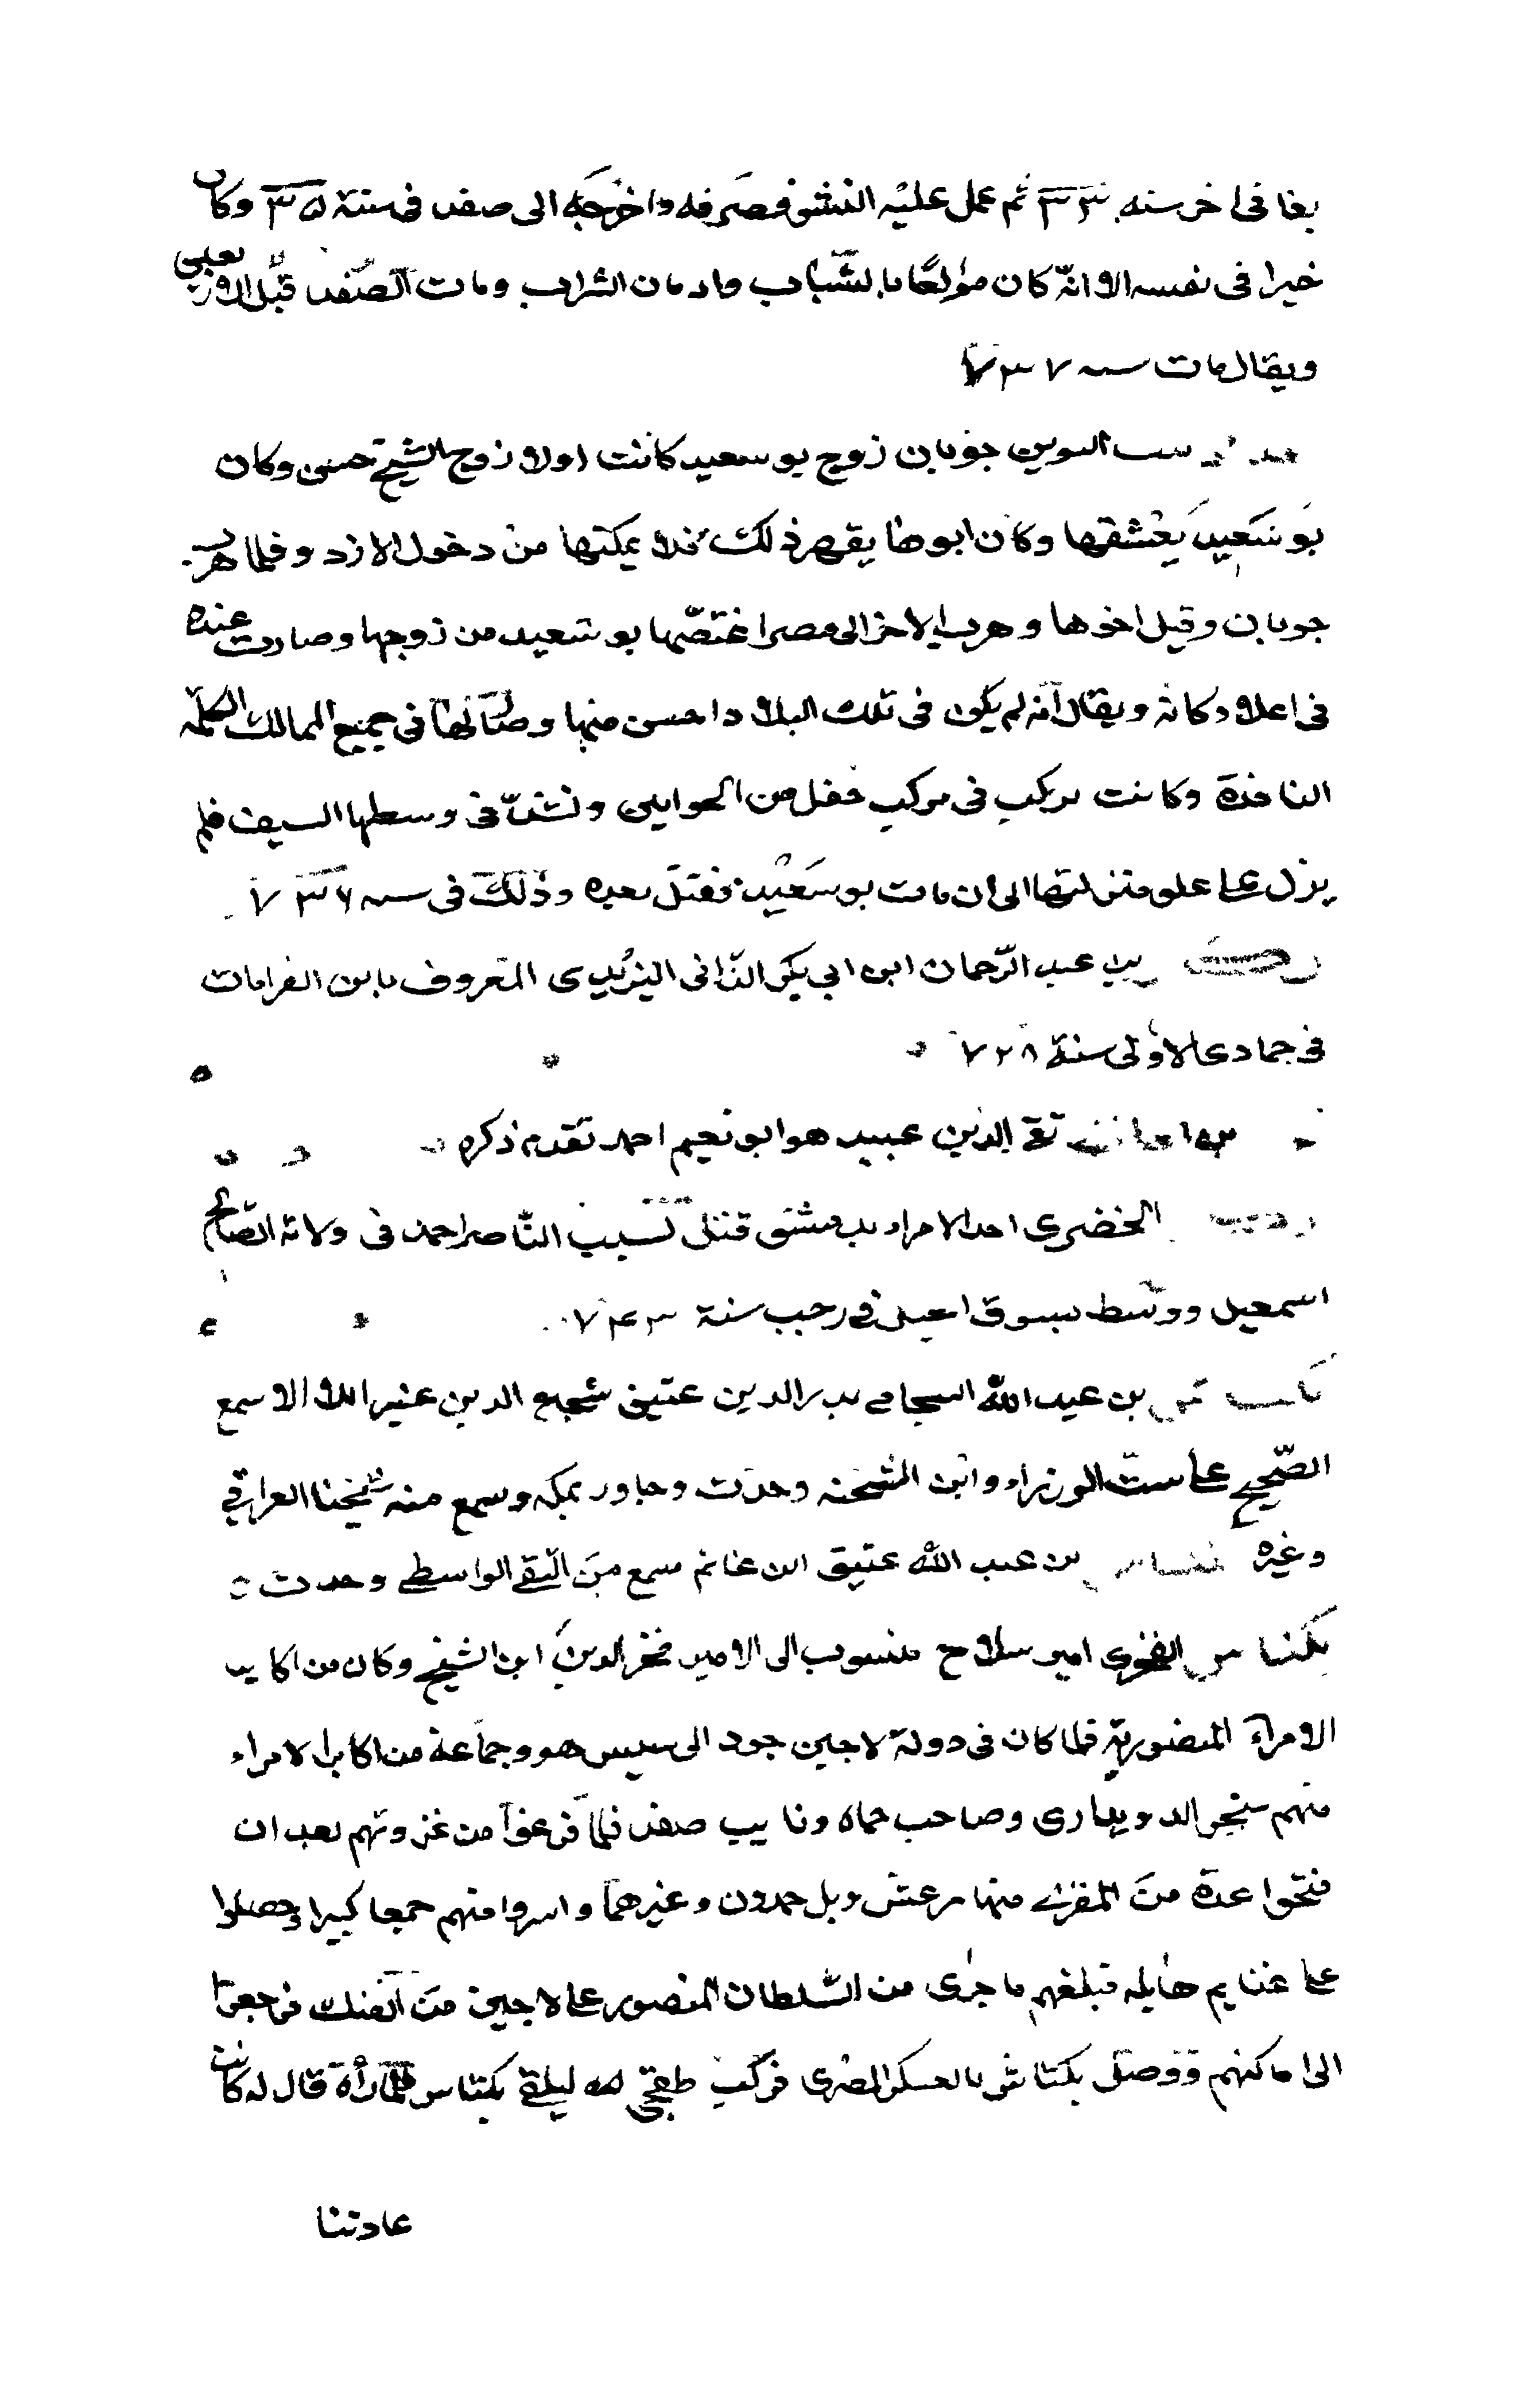 بغا فى اخر سنه ٣٣ ثم عمل عليه النشو فصرفه واخرجه الى صفد فى سنة ٣٥ وكان
خيرا فى نفسه الا انه كان مولعا بالشباب وادمان الشراب ومات بصفد قبل الاربعين
ويقال مات سنه ٧٣٧
بنت النوين جوبان زوج بو سعيد كانت اولا زوج الشيخ حسن وكان
بو سعيد يعشقها وكان ابوها يفهم ذلك فلا يمكنها من دخول الاردو فلما هرب
جوبان وقتل اخوها وهرب الاخر الى مصر اغتصبها بو سعيد من زوجها وصارت عنده
فى اعلا مكانة ويقال انه لم يكن فى تلك البلاد احسن منها وصار لها فى جميع الممالك الكلمة
النافذة وكانت تركب فى مركب حفل من الخواتين وتشد فى وسطها السيف فلم
يزل على علو منزلتها الى ان مات بو سعيد فقتل بعده وذلك فى سنه ٧٣٦
عبد الرحمان ابن ابي بكر اليزيدى المعروف بابن مات
فى جمادى الاولى سنة ٧٢٨
تقي الدين عبيد هو ابو نعيم احمد تقدم ذكره
الخضرى احد الامراء بدمشق قتل بسبب الناصر احمد فى ولاية الصالح
اسمعيل ووسط بسوق الخيل فى رجب سنة ٧٤٣
بن عبد الله بدر الدين عتيق شجاع الدين عنبر اللالا سمع
الصحيح على ست الوزراء وابن الشحنه وحدث وجاور بمكه وسمع منه شيخنا العراقي
وغيره بن عبد الله عتيق ابن غانم سمع من التقي الواسطي وحدث
بكتاش الفخرى امير سلاح منسوب الى الامير فخر الدين ابن الشيخ وكان من اكابر
الامراء المنصورية فلما كان فى دولة لاجين جرد الى سيس هو وجماعة من اكابر الامراء
منهم سنجر الدويدارى وصاحب حماه ونايب صفد فلما فرغوا من غزوتهم بعد ان
فتحوا عدة من القرى منها مرعش وتل حمدون وغيرهما واسروا منهم جمعا كبيرا وحصلوا
على غنايم هايله فبلغهم ما جرى من السلطان المنصور على لاجين من الفتك فرجعوا
الى اماكنهم ووصل بكتاش بالعسكر المصرى فركب طقجى ليلقى بكتاش فلما رآه قال له كانت
عادتنا